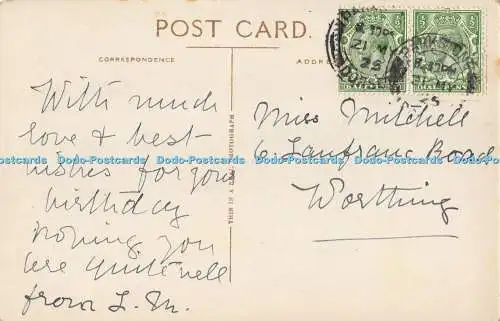 POST CARD.
CORRESPONDENCE
ADDRESS
With much
love & best
wishes for your
birthday
hoping you
are quite well
from L. M.
THIS IS A REAL PHOTOGRAPH
Miss Mitchell
6. Lanfranc Road
Worthing
Dodo-Postcards Dodo-Postcards Dodo-Postcards Dodo-Postcards Dodo-Postcards Dodo-Postcards